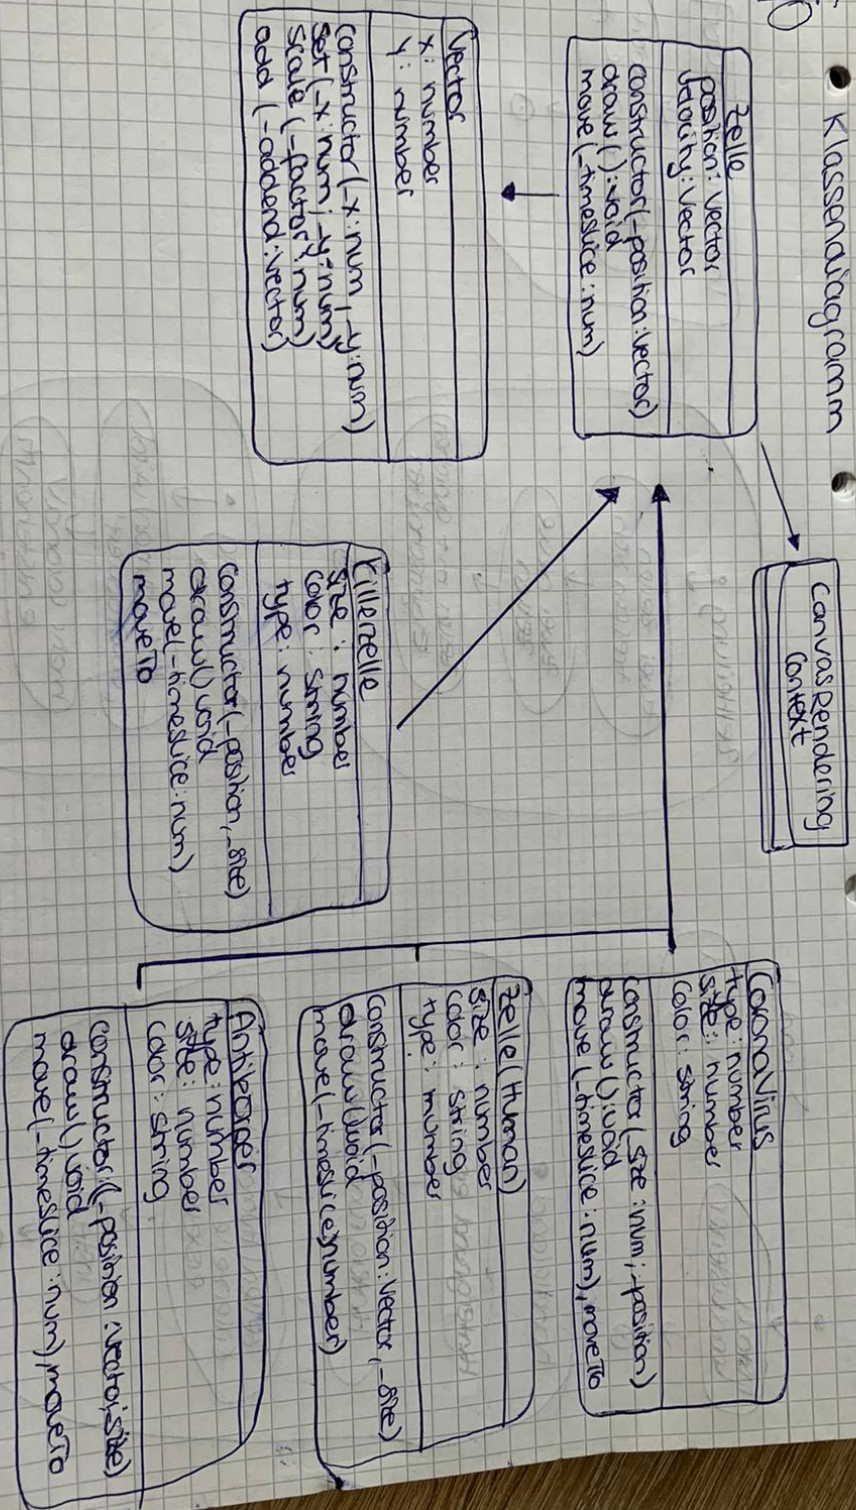 Klassendiagramm
Zelle
position: Vector
velocity: Vector
constructor(_position: Vector)
draw(): void
move(_timeslice: num)
CanvasRendering
Context
Vector
x: number
y: number
constructor(_x: num, _y: num)
set(_x: num; _y: num)
scale(_factor: num)
add (_addend: Vector)
Killerzelle
size: number
color: string
type: number
constructor(_position, _size)
draw() void
move(_timeslice: num)
moveTo
CoronaVirus
type: number
size: number
color: string
constructor(_size: num; _position)
draw() void
move (_timeslice: num), moveTo
Zelle(Human)
size: number
color: string
type: number
constructor(_position: Vector, _size)
draw() void
move(_timeslice: number)
Antikörper
type: number
size: number
color: string
constructor((_position: vector, _size)
draw() void
move(_timeslice: num), moveTo